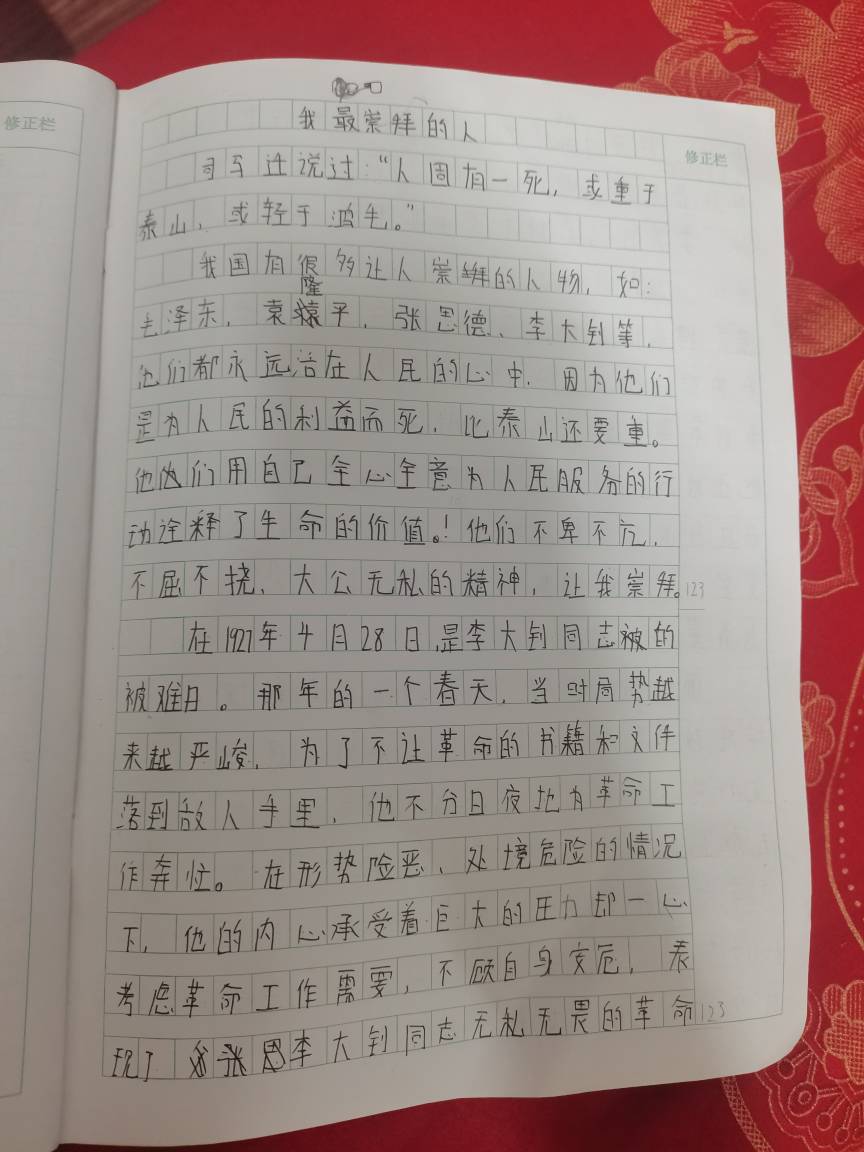 修正栏
修正栏
我最崇拜的人
司马迁说过："人固有一死，或重于
泰山，或轻于鸿毛。"
我国有很多让人崇拜的人物，如：
毛泽东，袁隆平，张思德、李大钊等，
他们都永远活在人民的心中．因为他们
是为人民的利益而死．比泰山还要重。
他们用自己全心全意为人民服务的行
动诠释了生命的价值。！他们不卑不亢，
不屈不挠、大公无私的精神，让我崇拜。123
在1927年4月28日，是李大钊同志被的
被难日。那年的一个春天．当时局势越
来越严峻，为了不让革命的书籍和文件
落到敌人手里，他不分日夜地为革命工
作奔忙。在形势险恶、处境危险的情况
下，他的内心承受着巨大的压力却一心
考虑革命工作需要，不顾自身安危，表
现了李大钊同志无私无畏的革命123